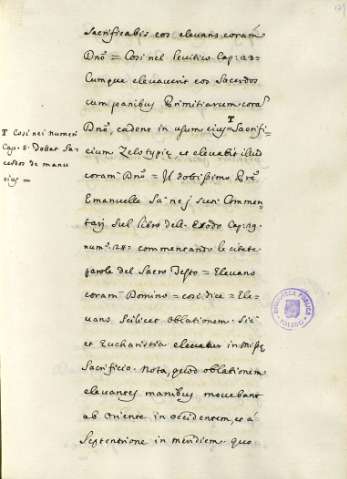 Sacrificabis eos elevans coram
Dno = Cosi nel Levitico Cap: 23 =
Cumque elevaverit eos Sacerdos
cum panibus Primitiarum corã
Dno, cadent in usum eius T Sacrifi-
cium Zelotypie et elevabit illud
coram Dno = Il dottissimo Pre
Emanuelle Sà nej suoi Commen-
tarij sul libro dell'Exodo Cap: 29
num: 24 = commentando le citate
parole del Sacro Testo = Elevans
coram Domino = cosi dice = Ele-
vans Scilicet oblationem. Sic
et Euchanistia elevatur in Missę
Sacrificio. Nota, quod oblationem
elevantes manibus movebant
ab Oriente in occidentem, et á
Septentrione in meridiem. quo
T Cosi nei numeri
Cap. 5. Dobat Sa-
cerdos de manu
eius =
BIBLIOTECA PUBLICA
TOLEDO